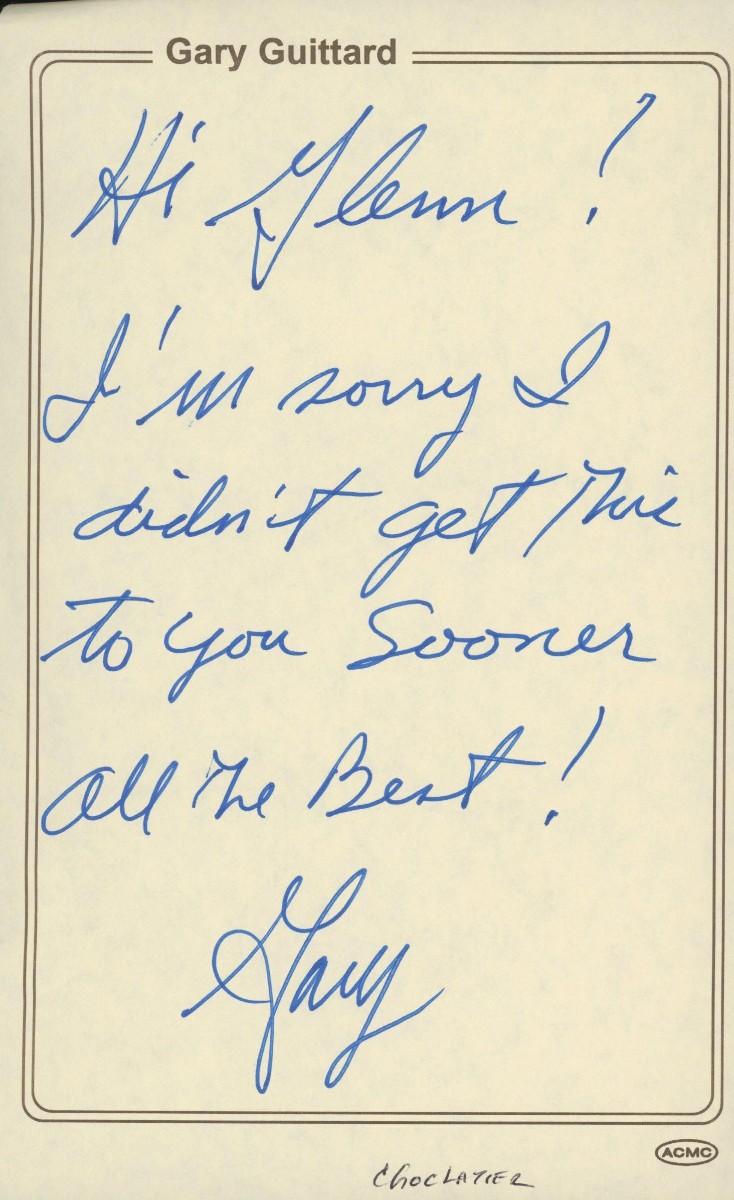 Gary Guittard
Hi Glenn!
I'm sorry I
didn't get This
to you Sooner
All The Best!
Gary
ACMC
CHOCLATIER